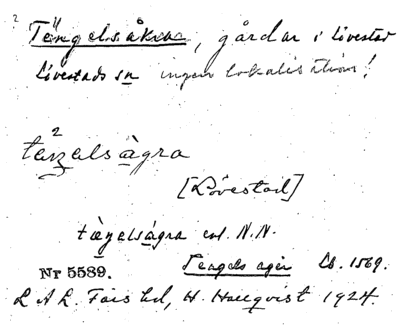 2
Tängelsåkra, gårdar i Livestad
Livestads sn ingen lokalisation!
2
tæŋelsàgra
[Lövestad]
tæŋelságra enl. N.N.
Nr 5589. Tengels ager Lb. 1569.
L A L. Förs hd, H. Hallqvist 1924.